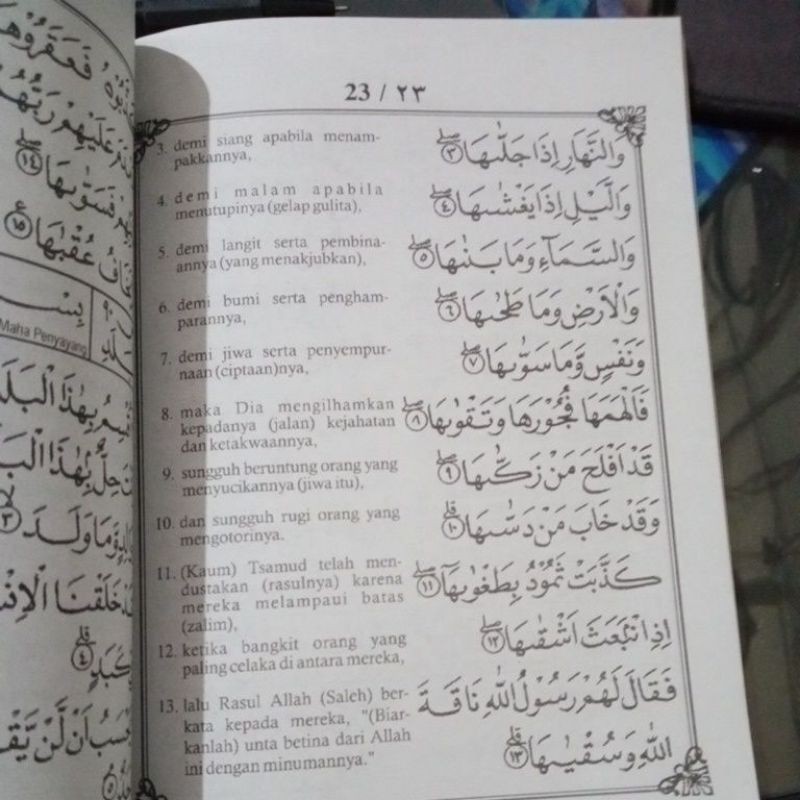 23 / ٢٣
3. demi siang apabila menam-
pakkannya,
وَالنَّهَارِ اِذَا جَلّٰىهَاۖ ٣
4. demi malam apabila
menutupinya (gelap gulita),
وَالَّيْلِ اِذَا يَغْشٰىهَاۖ ٤
5. demi langit serta pembina-
annya (yang menakjubkan),
وَالسَّمَاۤءِ وَمَا بَنٰىهَاۖ ٥
6. demi bumi serta pengham-
parannya,
وَالْاَرْضِ وَمَا طَحٰىهَاۖ ٦
7. demi jiwa serta penyempur-
naan (ciptaan)nya,
وَنَفْسٍ وَّمَا سَوّٰىهَاۖ ٧
8. maka Dia mengilhamkan
kepadanya (jalan) kejahatan
dan ketakwaannya,
فَاَلْهَمَهَا فُجُوْرَهَا وَتَقْوٰىهَاۖ ٨
9. sungguh beruntung orang yang
menyucikannya (jiwa itu),
قَدْ اَفْلَحَ مَنْ زَكّٰىهَاۖ ٩
10. dan sungguh rugi orang yang
mengotorinya.
وَقَدْ خَابَ مَنْ دَسّٰىهَاۗ ١٠
11. (Kaum) Tsamud telah men-
dustakan (rasulnya) karena
mereka melampaui batas
(zalim),
كَذَّبَتْ ثَمُوْدُ بِطَغْوٰىهَآۖ ١١
12. ketika bangkit orang yang
paling celaka di antara mereka,
اِذِ انْۢبَعَثَ اَشْقٰىهَاۖ ١٢
13. lalu Rasul Allah (Saleh) ber-
kata kepada mereka, "(Biar-
kanlah) unta betina dari Allah
ini dengan minumannya."
فَقَالَ لَهُمْ رَسُوْلُ اللّٰهِ نَاقَةَ
اللّٰهِ وَسُقْيٰىهَاۗ ١٣
فَعَقَرُوْهَا
عَلَيْهِمْ رَبُّهُمْ
فَسَوّٰىهَاۖ ١٤
عُقْبٰىهَا ١٥
٩٠
Maha Penyayang
بِهٰذَا الْبَلَدِ
حِلٌّۢ بِهٰذَا
وَّمَا وَلَدَۙ ٣
خَلَقْنَا
كَبَدٍۗ ٤
اَنْ لَّنْ
٥